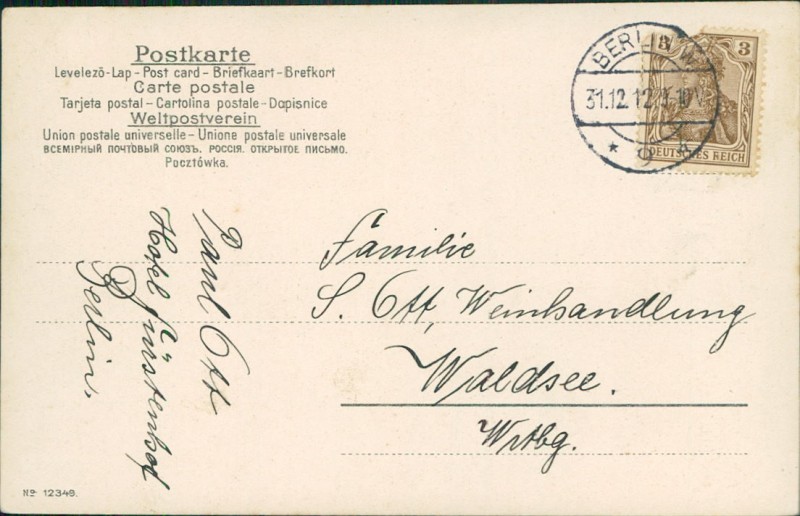 Postkarte
Levelező-Lap - Post card - Briefkaart - Brefkort
Carte postale
Tarjeta postal - Cartolina postale - Dopisnice
Weltpostverein
Union postale universelle - Unione postale universale
ВСЕМІРНЫЙ ПОЧТОВЫЙ СОЮЗЪ. РОССІЯ. ОТКРЫТОЕ ПИСЬМО.
Pocztówka.
BERLIN W
31.12.12.
* 9
3 3
DEUTSCHES REICH
Paul Ott
Hotel Fürstenhof
Berlin.
Familie
S. Ott, Weinhandlung
Waldsee.
Wrtbg.
No 12349.